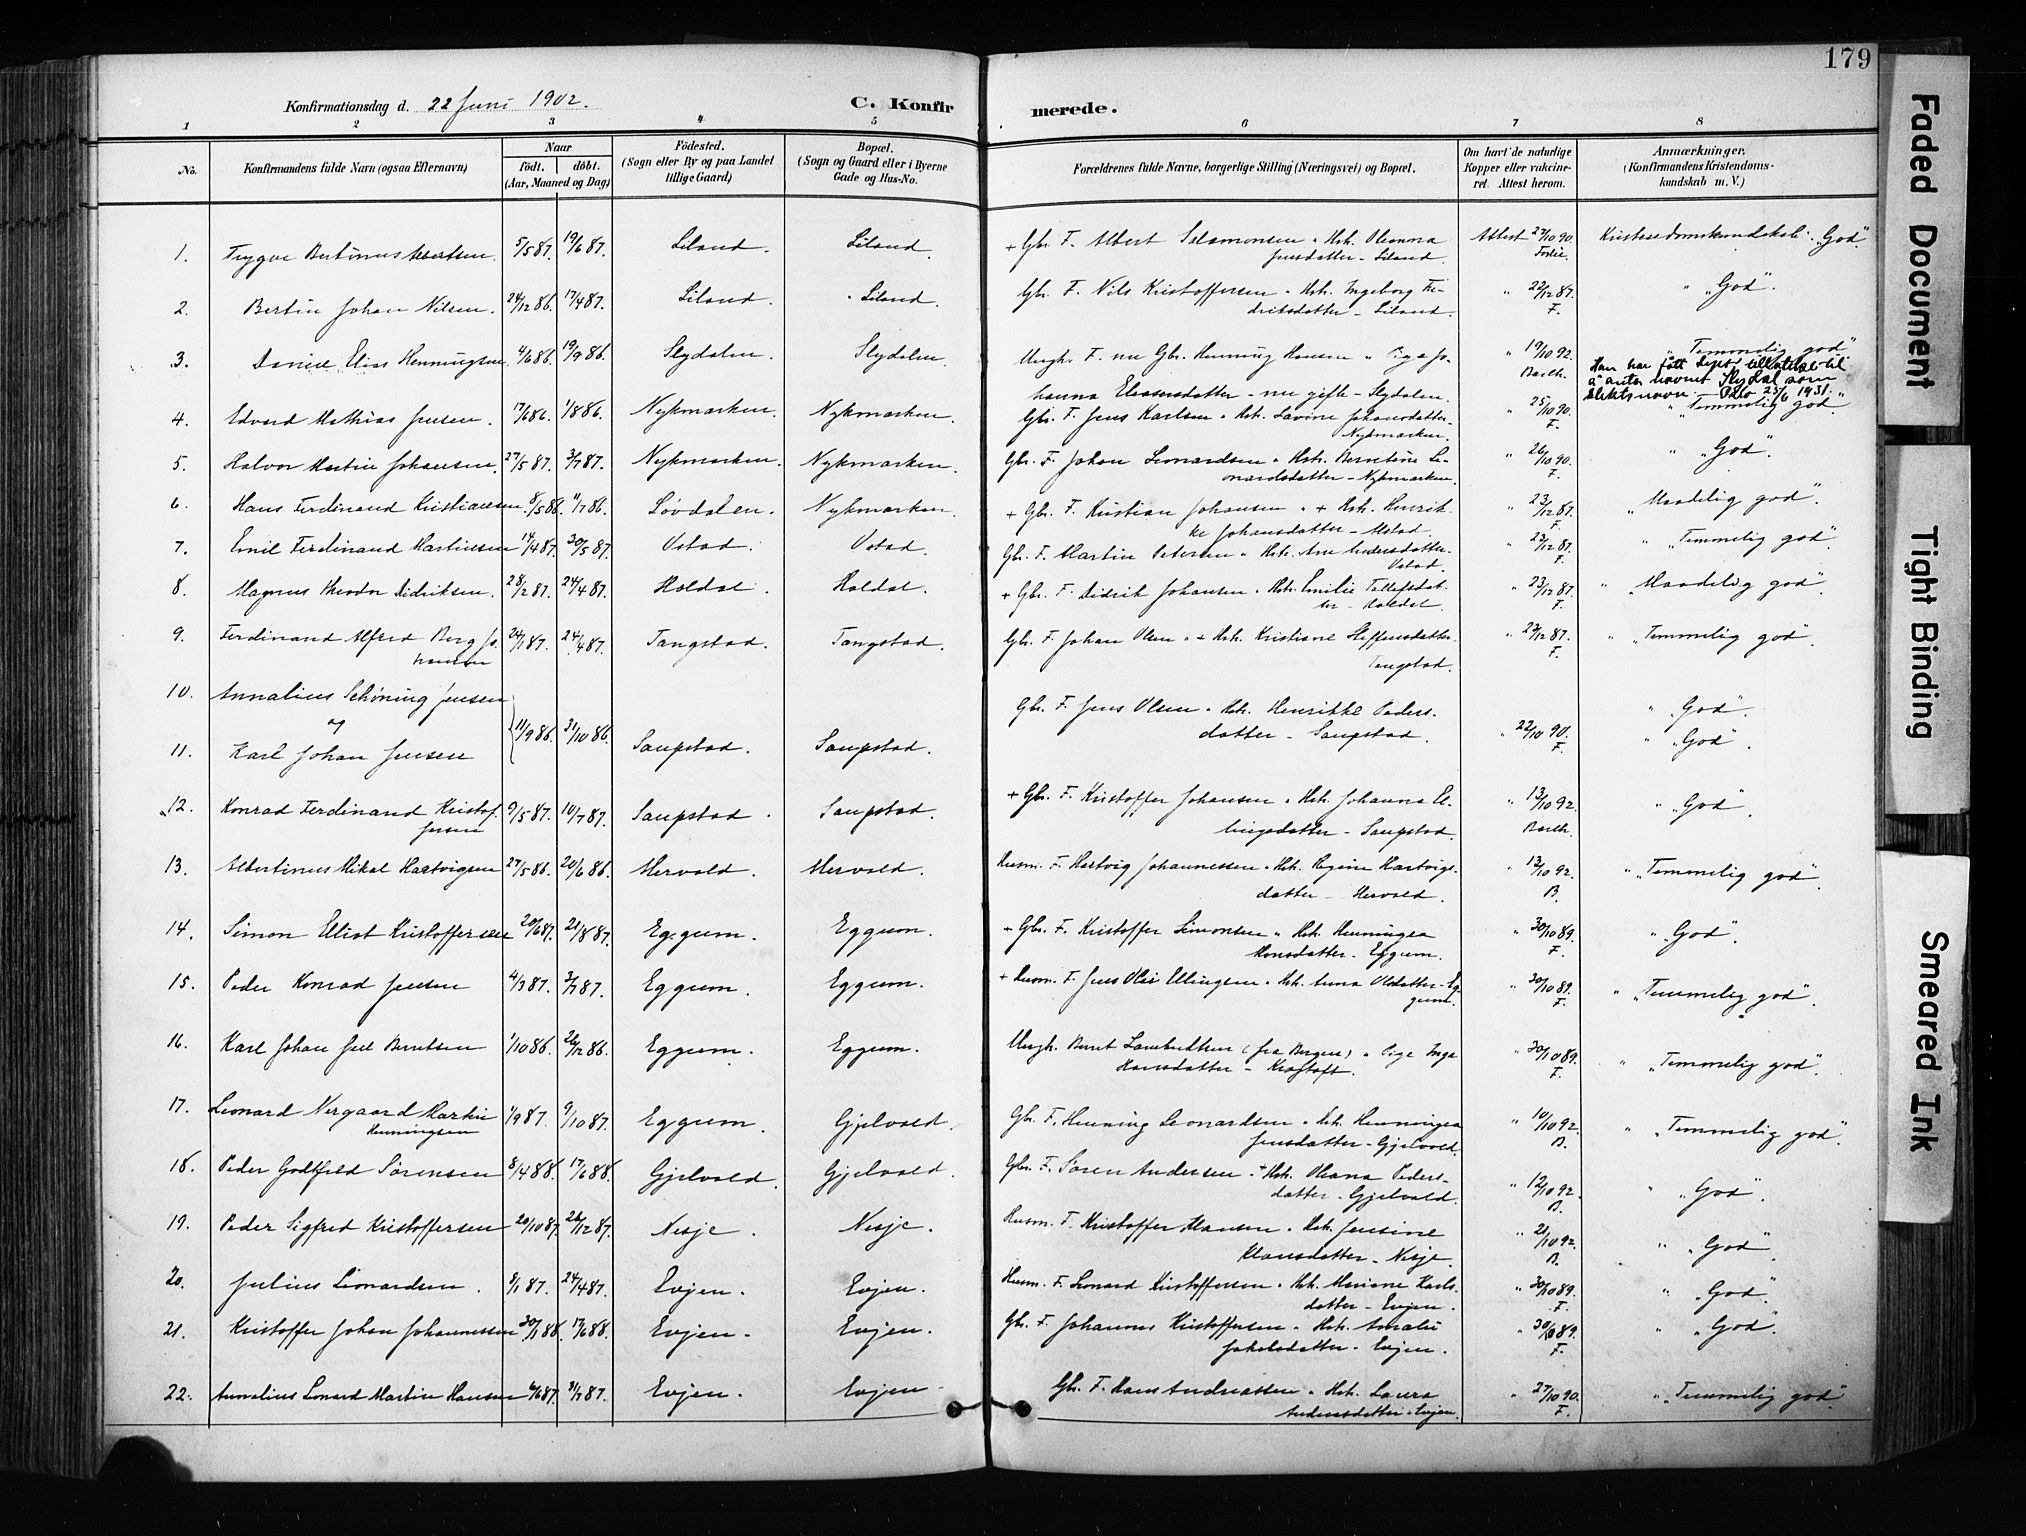 179
Konfirmationsdag d. 22 Juni 1902. C. Konfirmerede.
1 2 3 4 5 6 7 8
No. Konfirmandens fulde Navn (ogsaa Efternavn) Naar født. døbt. (Aar, Maaned og Dag) Fødested. (Sogn eller By og paa Landet tillige Gaard) Bopæl. (Sogn og Gaard eller i Byerne Gade og Hus-No. Forældrenes fulde Navne, borgerlige Stilling (Næringsvei) og Bopæl. Om havt de naturlige Kopper eller vakcineret. Attest herom. Anmærkninger, (Konfirmandens Kristendomskundskab m. V.)
1. Trygve Bertinus Albertsen. 5/5 87. 19/6 87. Liland. Liland. + Gbr. F. Albert Salamonsen " Hst. Olemna
Jensdatter - Liland. Attest 27/10 90. Kristendomskundskab: "God"
2. Bertin Johan Nilsen. 24/12 86. 17/4 87. Liland. Liland. Gbr. F. Nils Kristoffersen " Hst. Ingeborg Fre-
driksdatter - Liland. " 22/12 87. F. " "God".
3. Daniel Elias Henningsen. 4/6 86. 19/9 86. Slydalen. Slydalen. Ungk. F. nu Gbr. Henning Hansen " Pige Jo-
hanna Eleasersdatter - nu gifte - Slydalen. " 19/10 92. Barth. " "Temmelig god"
Han har fått tillatelse til
å anta navnet Slydal som
slektsnavn. - Oslo 25/6 1931.
4. Edvard Mathias Jensen. 17/6 86. 1/8 86. Nykmarken. Nykmarken. Gbr. F. Jens Karlsen " Hst. Lavine Johansdatter
Nykmarken. " 25/10 90. F. " "Temmelig god"
5. Halvor Martin Johansen. 27/5 87. 3/7 87. Nykmarken. Nykmarken. Gbr. F. Johan Leonardsen " Hst. Berntine Le-
onardsdatter - Nykmarken. " 26/10 90. F. " "God".
6. Hans Ferdinand Kristiansen 8/5 86. 11/7 86. Løvdalen. Nykmarken. + Gbr. F. Kristian Johansen " + Hst. Henrik-
ke Johansdatter - Ustad. " 23/12 87. F. "Maadelig god".
7. Emil Ferdinand Martinsen 14/4 87. 30/5 87. Ustad. Ustad. Gbr. F. Martin Petersen " Hst. Ane Andersdatter
Ustad. " 23/12 87. F. " "Temmelig god".
8. Magnus Theodor Didriksen. 28/2 87. 24/4 87. Holdal. Holdal. + Gbr. F. Didrik Johansen " Hst. Emilie Tollefsdat-
ter - Holdal. " 23/12 87. F. " "Maadelig god".
9. Ferdinand Alfred Berg Jo-
hansen 24/1 87. 24/4 87. Tangstad. Tangstad. Gbr. F. Johan Olsen " + Hst. Kristiane Steffensdatter
Tangstad. " 23/12 87. F. " "Temmelig god".
10. Annalius Schøning Jensen
og
11. Karl Johan Jensen 11/9 86. 31/10 86. Saupstad. Saupstad. Gbr. F. Jens Olsen " Hst. Henrikke Peders-
datter - Saupstad. " 22/10 90. F. " "God". " "God".
12. Konrad Ferdinand Kristof-
fersen 9/5 87. 10/7 87. Saupstad. Saupstad. + Gbr. F. Kristoffer Johansen " Hst. Johanna El-
lingsdatter - Saupstad. " 13/10 92. Barth. " "God".
13. Albertinus Mikal Hartvigsen 27/5 86. 20/6 86. Hervold. Hervold. Husm. F. Hartvig Johannessen " Hst. Regine Hartvigs-
datter - Hervold. " 13/10 92. B. " "Temmelig god".
14. Simon Elliot Kristoffersen 20/6 87. 21/8 87. Eggum. Eggum. + Gbr. F. Kristoffer Simonsen " Hst. Henningea
Monsdatter - Eggum. " 30/10 89. F. " "God".
15. Peder Konrad Jensen 4/3 87. 3/7 87. Eggum. Eggum. + Husm. F. Jens Olai Ellingsen " Hst. Anna Olsdatter - Eg-
gum. " 30/10 89. F. " "Temmelig god".
16. Karl Johan Juel Berntsen 1/10 86. 26/12 86. Eggum. Eggum. Ungk. Bernt Lambrektsen (fra Bergen) " Pige Inga
Hansdatter - Kraftoft. " 30/10 89. F. " "Temmelig god".
17. Leonard Nergaard Martin
Henningsen 1/9 87. 9/10 87. Eggum. Gjelvold. Gbr. F. Henning Leonardsen " Hst. Henningea
Jensdatter - Gjelvold. " 10/10 92. B. " "Temmelig god".
18. Peder Godtfred Sørensen 8/4 88. 17/6 88. Gjelvold. Gjelvold. Gbr. F. Søren Andersen " + Hst. Oleana Peders-
datter - Gjelvold. " 12/10 92. B. " "God".
19. Peder Sigfred Kristoffersen 20/10 87. 26/12 87. Nesje. Nesje. Husm. F. Kristoffer Hansen " Hst. Jensine
Klausdatter - Nesje. " 21/10 92. B. " "God".
20. Julius Leonardsen. 8/1 87. 24/4 87. Evjen. Evjen. Husm. F. Leonard Kristoffersen " Hst. Mariane Karls-
datter - Evjen. " 30/10 89. F. " "God".
21. Kristoffer Johan Johannessen 30/1 88. 17/6 88. Evjen. Evjen. Gbr. F. Johannes Kristoffersen " Hst. Amalie
Jakobsdatter - Evjen. " 30/10 89. F. " "God".
22. Annalius Leonard Martin Hansen 6/6 87. 31/7 87. Evjen. Evjen. Gbr. F. Hans Andreassen " Hst. Laura
Andersdatter - Evjen. " 27/10 90. F. " "Temmelig god".
Faded Document
Tight Binding
Smeared Ink